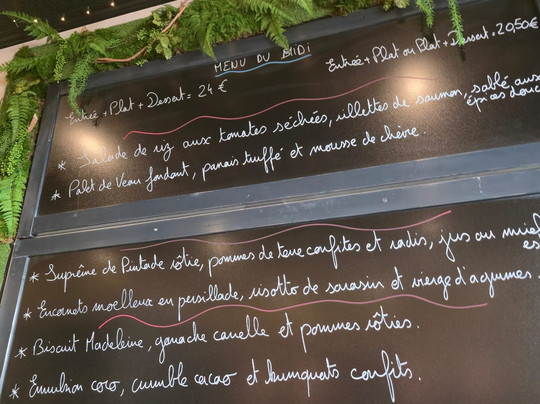 MENU DU MIDI
Entrée + Plat + Dessert = 24 €
Entrée + Plat ou Plat + Dessert = 20,50€
* Salade de riz aux tomates séchées, rillettes de saumon, sablé aux
épices douc
* Palet de Veau fondant, panais truffé et mousse de chèvre.
* Suprême de Pintade rôtie, pommes de terre confites et radis, jus au miel
es
* Encornets moelleux en persillade, risotto de sarasin et vierge d'agrumes.
* Biscuit Madeleine, ganache canelle et pommes rôties.
* Emulsion coco, crumble cacao et kumquats confits.